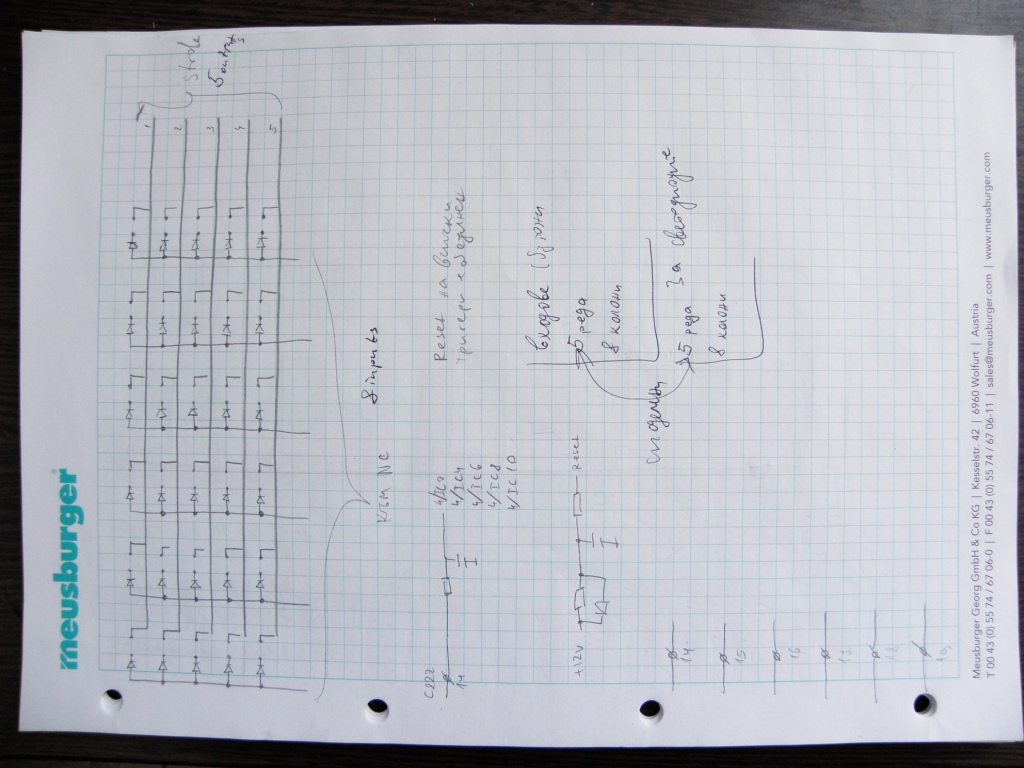 meusburger
Strobe
5 outputs
1
2
3
4
5
8 inputs
Към NC
Reset на всички
тригери е
4/IC4
4/IC6
4/IC8
4/IC10
14
+12V
Reset
входове (бутони
5 реда
8 колони
5 реда За светодиодите
8 колони
14
15
16
17
18
19
Meusburger Georg GmbH & Co KG | Kesselstr. 42 | 6960 Wolfurt | Austria
T 00 43 (0) 55 74 / 67 06-0 | F 00 43 (0) 55 74 / 67 06-11 | sales@meusburger.com | www.meusburger.com